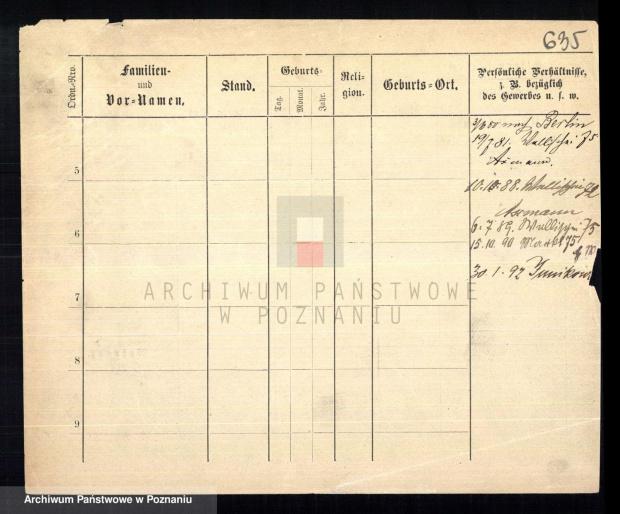 635
Ordn.-Nro.
Familien-
und
Vor-Namen.
Stand.
Geburts-
Tag.
Monat.
Jahr.
Reli-
gion.
Geburts-Ort.
Persönliche Verhältnisse,
z. B. bezüglich
des Gewerbes u. s. w.
nach Berlin
19/7 81. Wallischei 75
Axmann.
5
10.10.88. Wallischei
Axmann
6. 7 89. Wallischei 75
15.10.90
6
30.1.92
7
8
9
ARCHIWUM PAŃSTWOWE
W POZNANIU
Archiwum Państwowe w Poznaniu